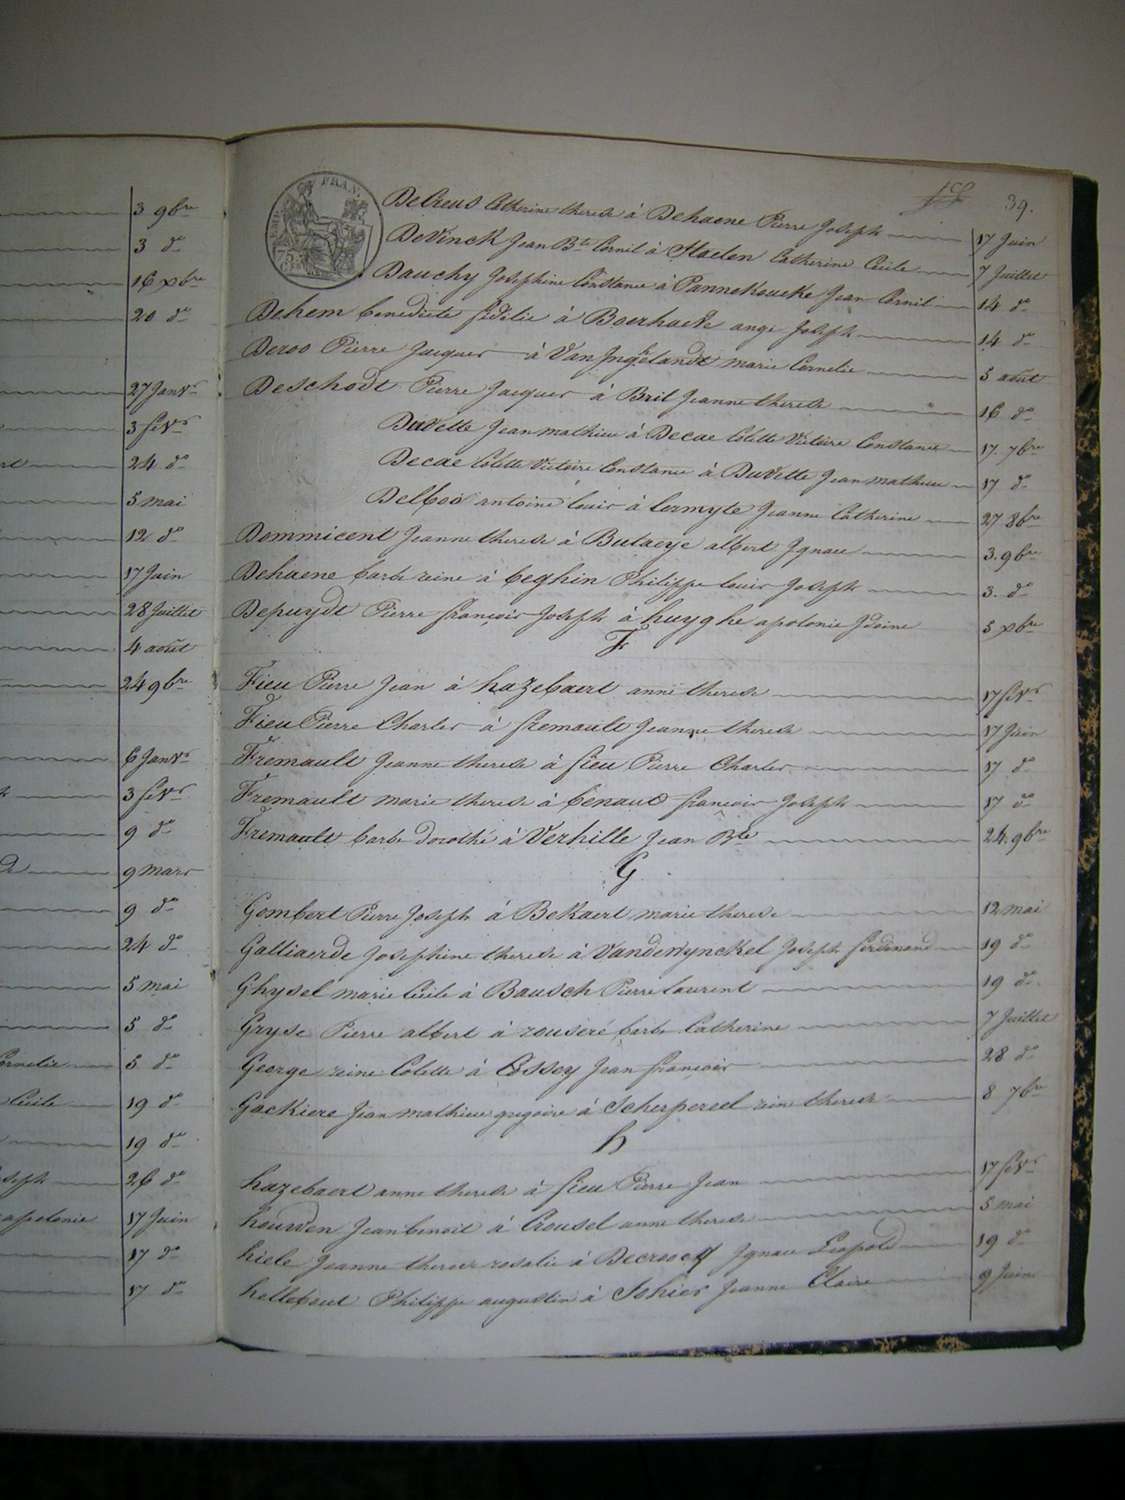 3 9bre
3 do
16 xbre
20 do
27 Janvr
3 fevr
24 do
5 mai
12 do
17 Juin
28 Juillet
4 août
24 9bre
6 Janvr
3 fevr
9 do
9 mars
9 do
24 do
5 mai
5 do
5 do
19 do
19 do
26 do
17 Juin
17 do
17 do
39.
DeCreus Catherine therese à Dehaene Pierre Joseph 17 Juin
DeVinck Jean Bte Cornil à Staelen Catherine Cecile 7 Juillet
Dauchy Josephine Constance à Pannekoucke Jean Cornil 14 do
Dehem benedicte fidelie à Boerhaeve ange Joseph 14 do
Deroo Pierre Jacques à Van Inghelandt marie Cornelie 5 août
Deschodt Pierre Jacques à Bril Jeanne therese 16 do
Duvette Jean mathieu à Decae Colette Victoire Constance 17 7bre
Decae Colette Victoire Constance à Duvette Jean mathieu 17 do
Delbos antoine Louis à Lermyte Jeanne Catherine 27 8bre
Demmicent Jeanne therese à Butaeye albert Ignace 3. 9bre
Dehaene barbe reine à beghin Philippe Louis Joseph 3. do
Depuydt Pierre françois Joseph à huyghe apolonie Idoine 5 xbre
F
Fieu Pierre Jean à hazebaert anne therese 17 fevr
Fieu Pierre Charles à fremault Jeanne therese 17 Juin
Fremault Jeanne therese à fieu Pierre Charles 17 do
Fremault marie therese à benaut françois Joseph 17 do
Fremault barbe dorothé à Verhille Jean Bte 24. 9bre
G
Gombert Pierre Joseph à Bekaert marie therese 12 mai
Galliaerde Josephine therese à Vanderwynckel Joseph ferdinand 19 do
Ghysel marie Cecile à Bausch Pierre Laurent 19 do
Gryse Pierre albert à rouseré barbe Catherine 7 Juillet
George reine Colette à Cossey Jean françois 28 do
Gackiere Jean mathieu gregoire à Scherpereel reine therese 8 7bre
h
hazebaert anne therese à fieu Pierre Jean 17 fevr
houwen Jean benoit à Crousel anne therese 5 mai
hiele Jeanne therese rosalie à Decroocq Ignace Leopold 19 do
hellebout Philippe augustin à Sohier Jeanne Claire 9 Juin